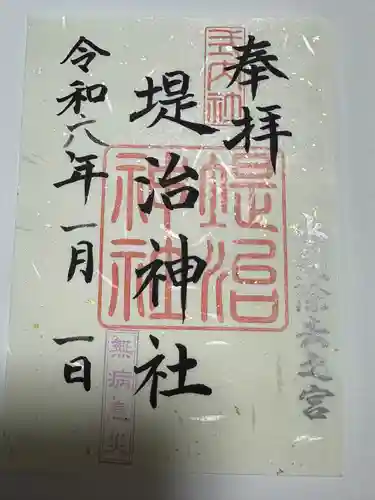 奉拝
式内社
堤治神社
堤治神社
令和六年一月一日
無病息災